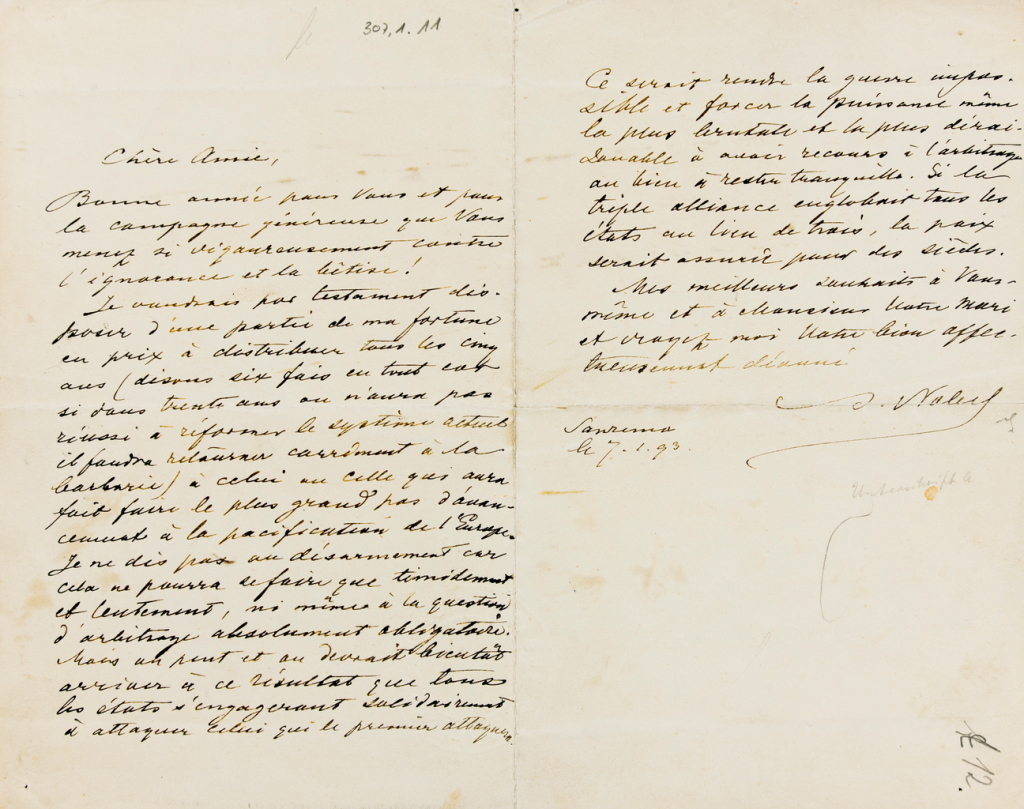 307.1.11
Chère Amie,
Bonne année pour Vous et pour
la campagne généreuse que Vous
menez si vigoureusement contre
l'ignorance et la bêtise!
Je voudrais par testament dis-
poser d'une partie de ma fortune
en prix à distribuer tous les cinq
ans (disons six fois en tout car
si dans trente ans on n'aura pas
réussi à réformer le système actuel
il faudra retourner carrément à la
barbarie) à celui ou celle qui aura
fait faire le plus grand pas d'avan-
cement à la pacification de l'Europe.
Je ne dis pas au désarmement car
cela ne pourra se faire que timidement
et lentement, ni même à la question
d'arbitrage absolument obligatoire.
Mais on peut et on devrait bientôt
arriver à ce résultat que tous
les états s'engageront solidairement
à attaquer celui qui le premier attaquera.
Ce serait rendre la guerre impos-
sible et forcer la puissance même
la plus brutale et la plus dérai-
sonnable à avoir recours à l'arbitrage
ou bien à rester tranquille. Si la
triple alliance englobait tous les
états au lieu de trois, la paix
serait assurée pour des siècles.
Mes meilleurs souhaits à Vous-
même et à Monsieur Votre Mari
et croyez moi Votre bien affec-
tueusement dévoué
A. Nobel
Sanremo
le 7.1.93.
Unterschrift
12.